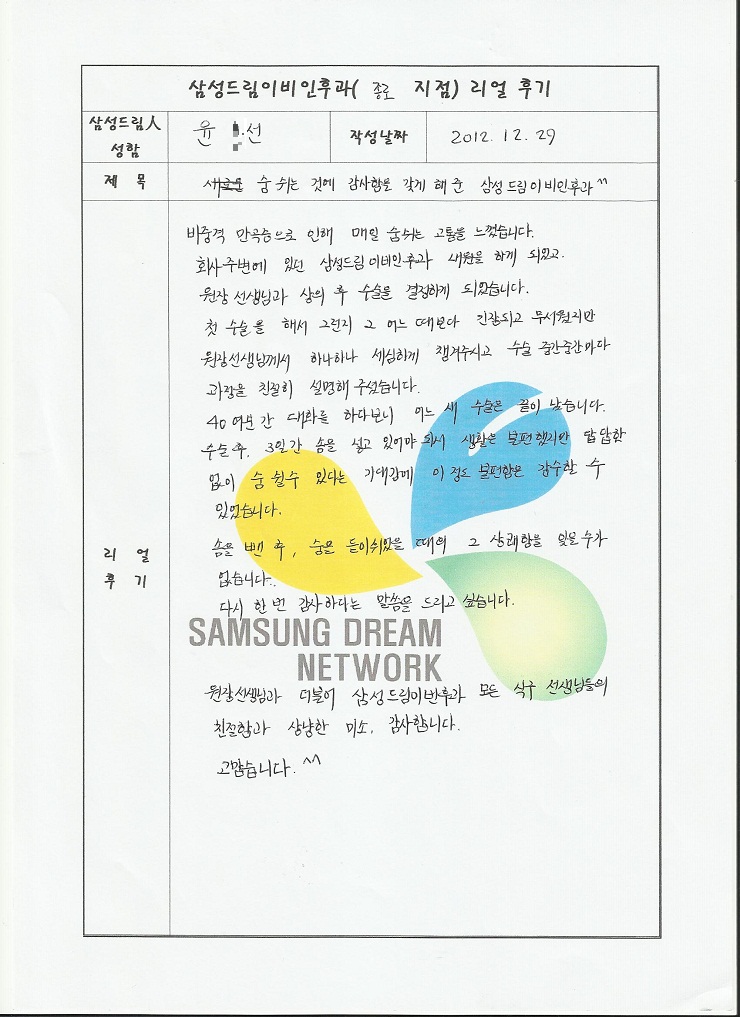 삼성드림이비인후과( 종로 지점) 리얼 후기
삼성드림人
성함
윤 선
작성날짜
2012. 12. 29
제 목
숨 쉬는 것에 감사함을 갖게 해 준 삼성드림이비인후과^^
리 얼
후 기
비중격 만곡증으로 인해 매일 숨쉬는 고통을 느꼈습니다.
회사주변에 있던 삼성드림이비인후과 내원을 하게 되었고.
원장선생님과 상의 후 수술을 결정하게 되었습니다.
첫 수술을 해서 그런지 그 어느 때보다 긴장되고 무서웠지만
원장선생님께서 하나하나 세심하게 챙겨주시고 수술 중간중간마다
과정을 친절히 설명해 주셨습니다.
40여분간 대화를 하다보니 어느 새 수술은 끝이 났습니다.
수술 후, 3일간 솜을 넣고 있어야 되서 생활은 불편했지만 답답함
없이 숨 쉴수 있다는 기대감에 이 정도 불편함은 감수할 수
있었습니다.
솜을 뺀 후, 숨을 들이쉬었을 때의 그 상쾌함을 잊을 수가
없습니다.
다시 한 번 감사하다는 말씀을 드리고 싶습니다.
SAMSUNG DREAM
NETWORK
원장선생님과 더불어 삼성드림이비인후과 모든 식구 선생님들의
친절함과 상냥한 미소, 감사합니다.
고맙습니다. ^^